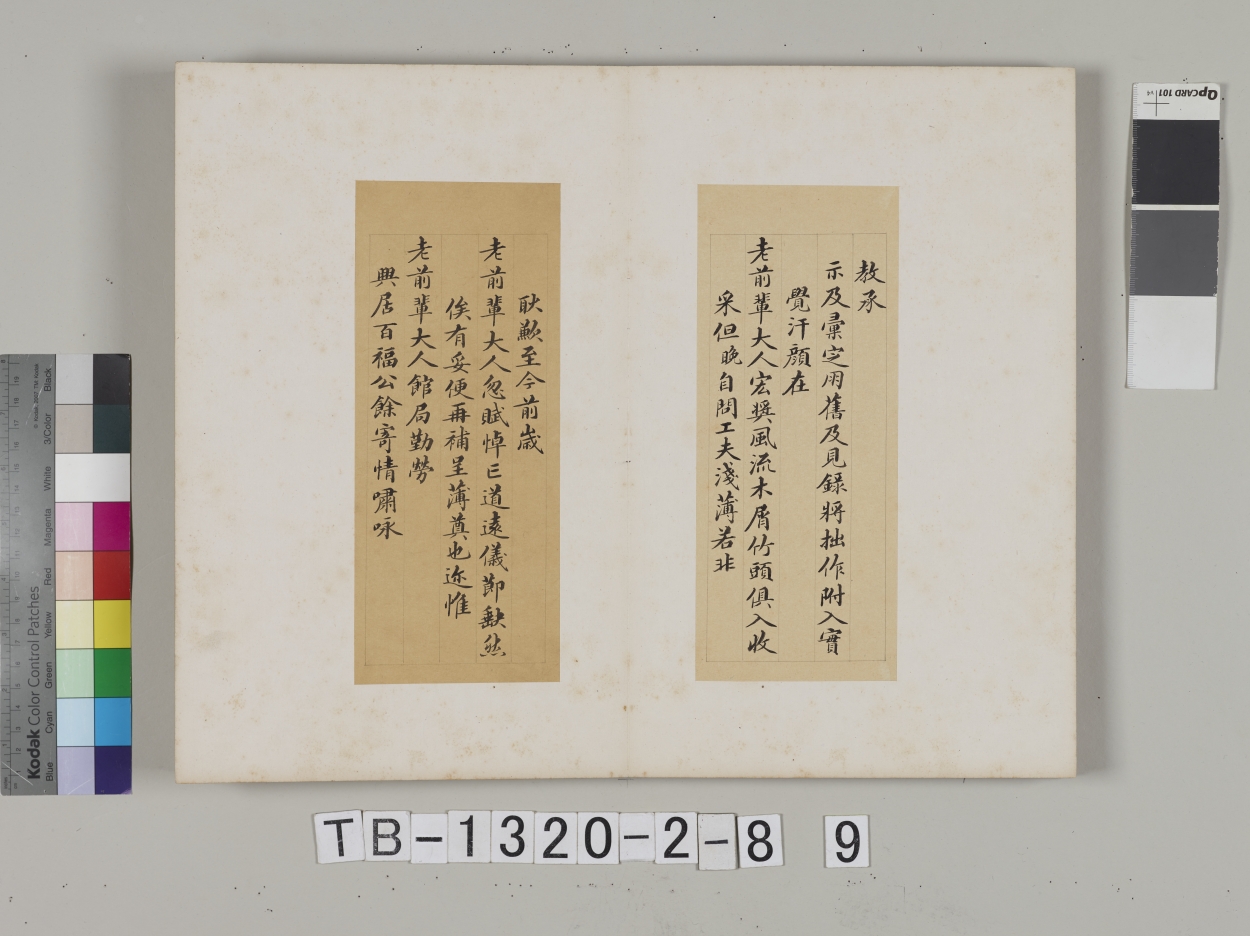 教承
示及彙定用舊及見錄將拙作附入實
覺汗顏在
老前輩大人宏奬風流木屑竹頭俱入收
采但晚自問工夫淺薄若非
耿歉至今前歲
老前輩大人忽賦悼亡道遠儀節缺然
俟有妥便再補呈薄奠也迩惟
老前輩大人館局勤勞
興居百福公餘寄情嘯咏
TB-1320-2-8 9
QPCARD 101 v4
Kodak Color Control Patches
Blue Cyan Green Yellow Red Magenta White 3/Color Black